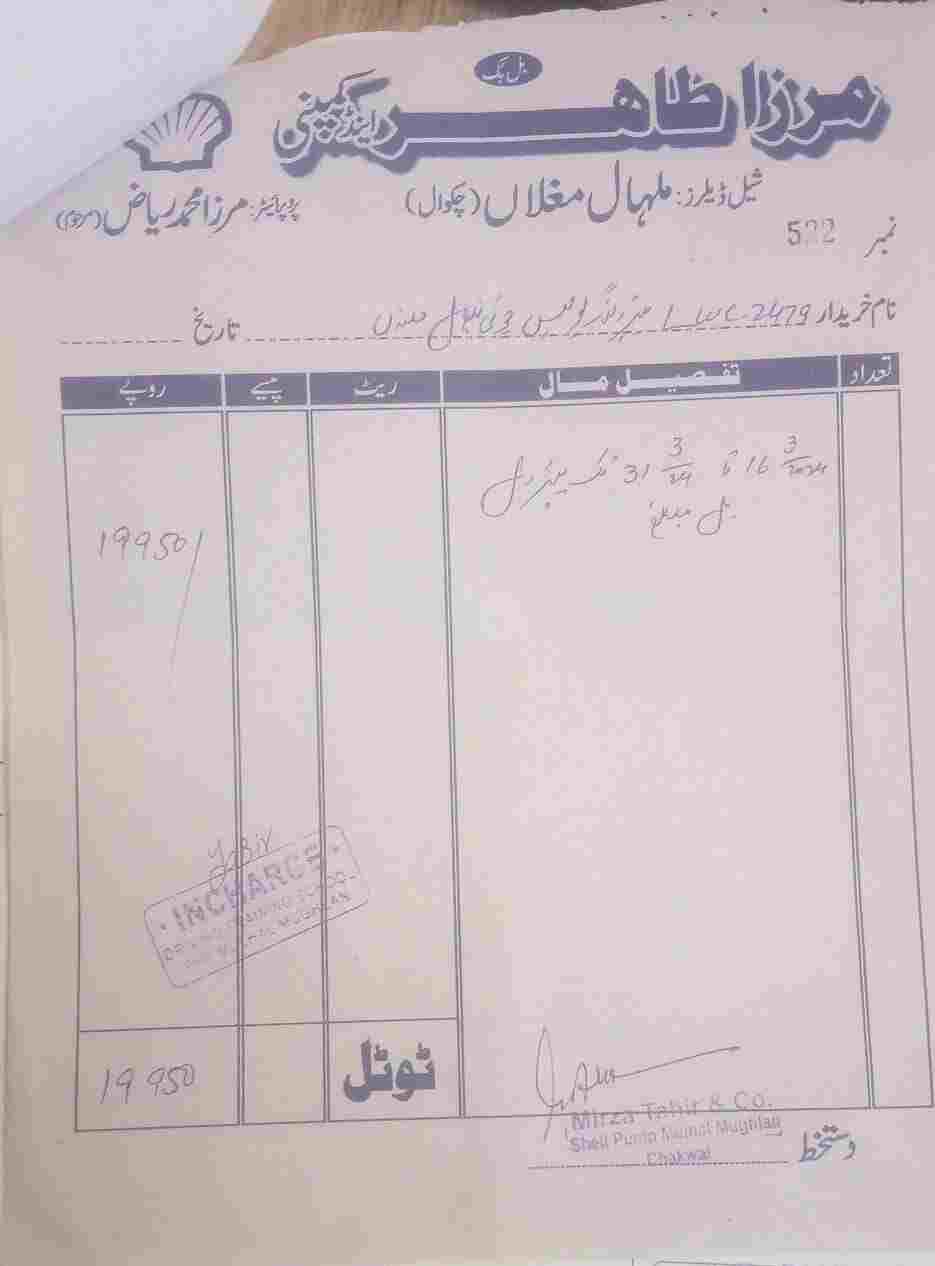 بل بک
مرزا طاہر اینڈ کمپنی
شیل ڈیلرز: ملہال مغلاں (چکوال)
پروپرائیٹر: مرزا محمد ریاض (مرحوم)
نمبر 522
نام خریدار LWC-2479
تاریخ
تعداد تفصیل مال ریٹ پیسے روپے
16 3/2024 تا 31 3/24 تک پیٹرول
بل مبلغ
19950/
Yasir
INCHARGE
DRIVING TRAINING SCHOOL
MULHAL MUGHLAN
ٹوٹل 19950
Mirza Tahir & Co.
Shell Pump Mulhal Mughlan
Chakwal
دستخط